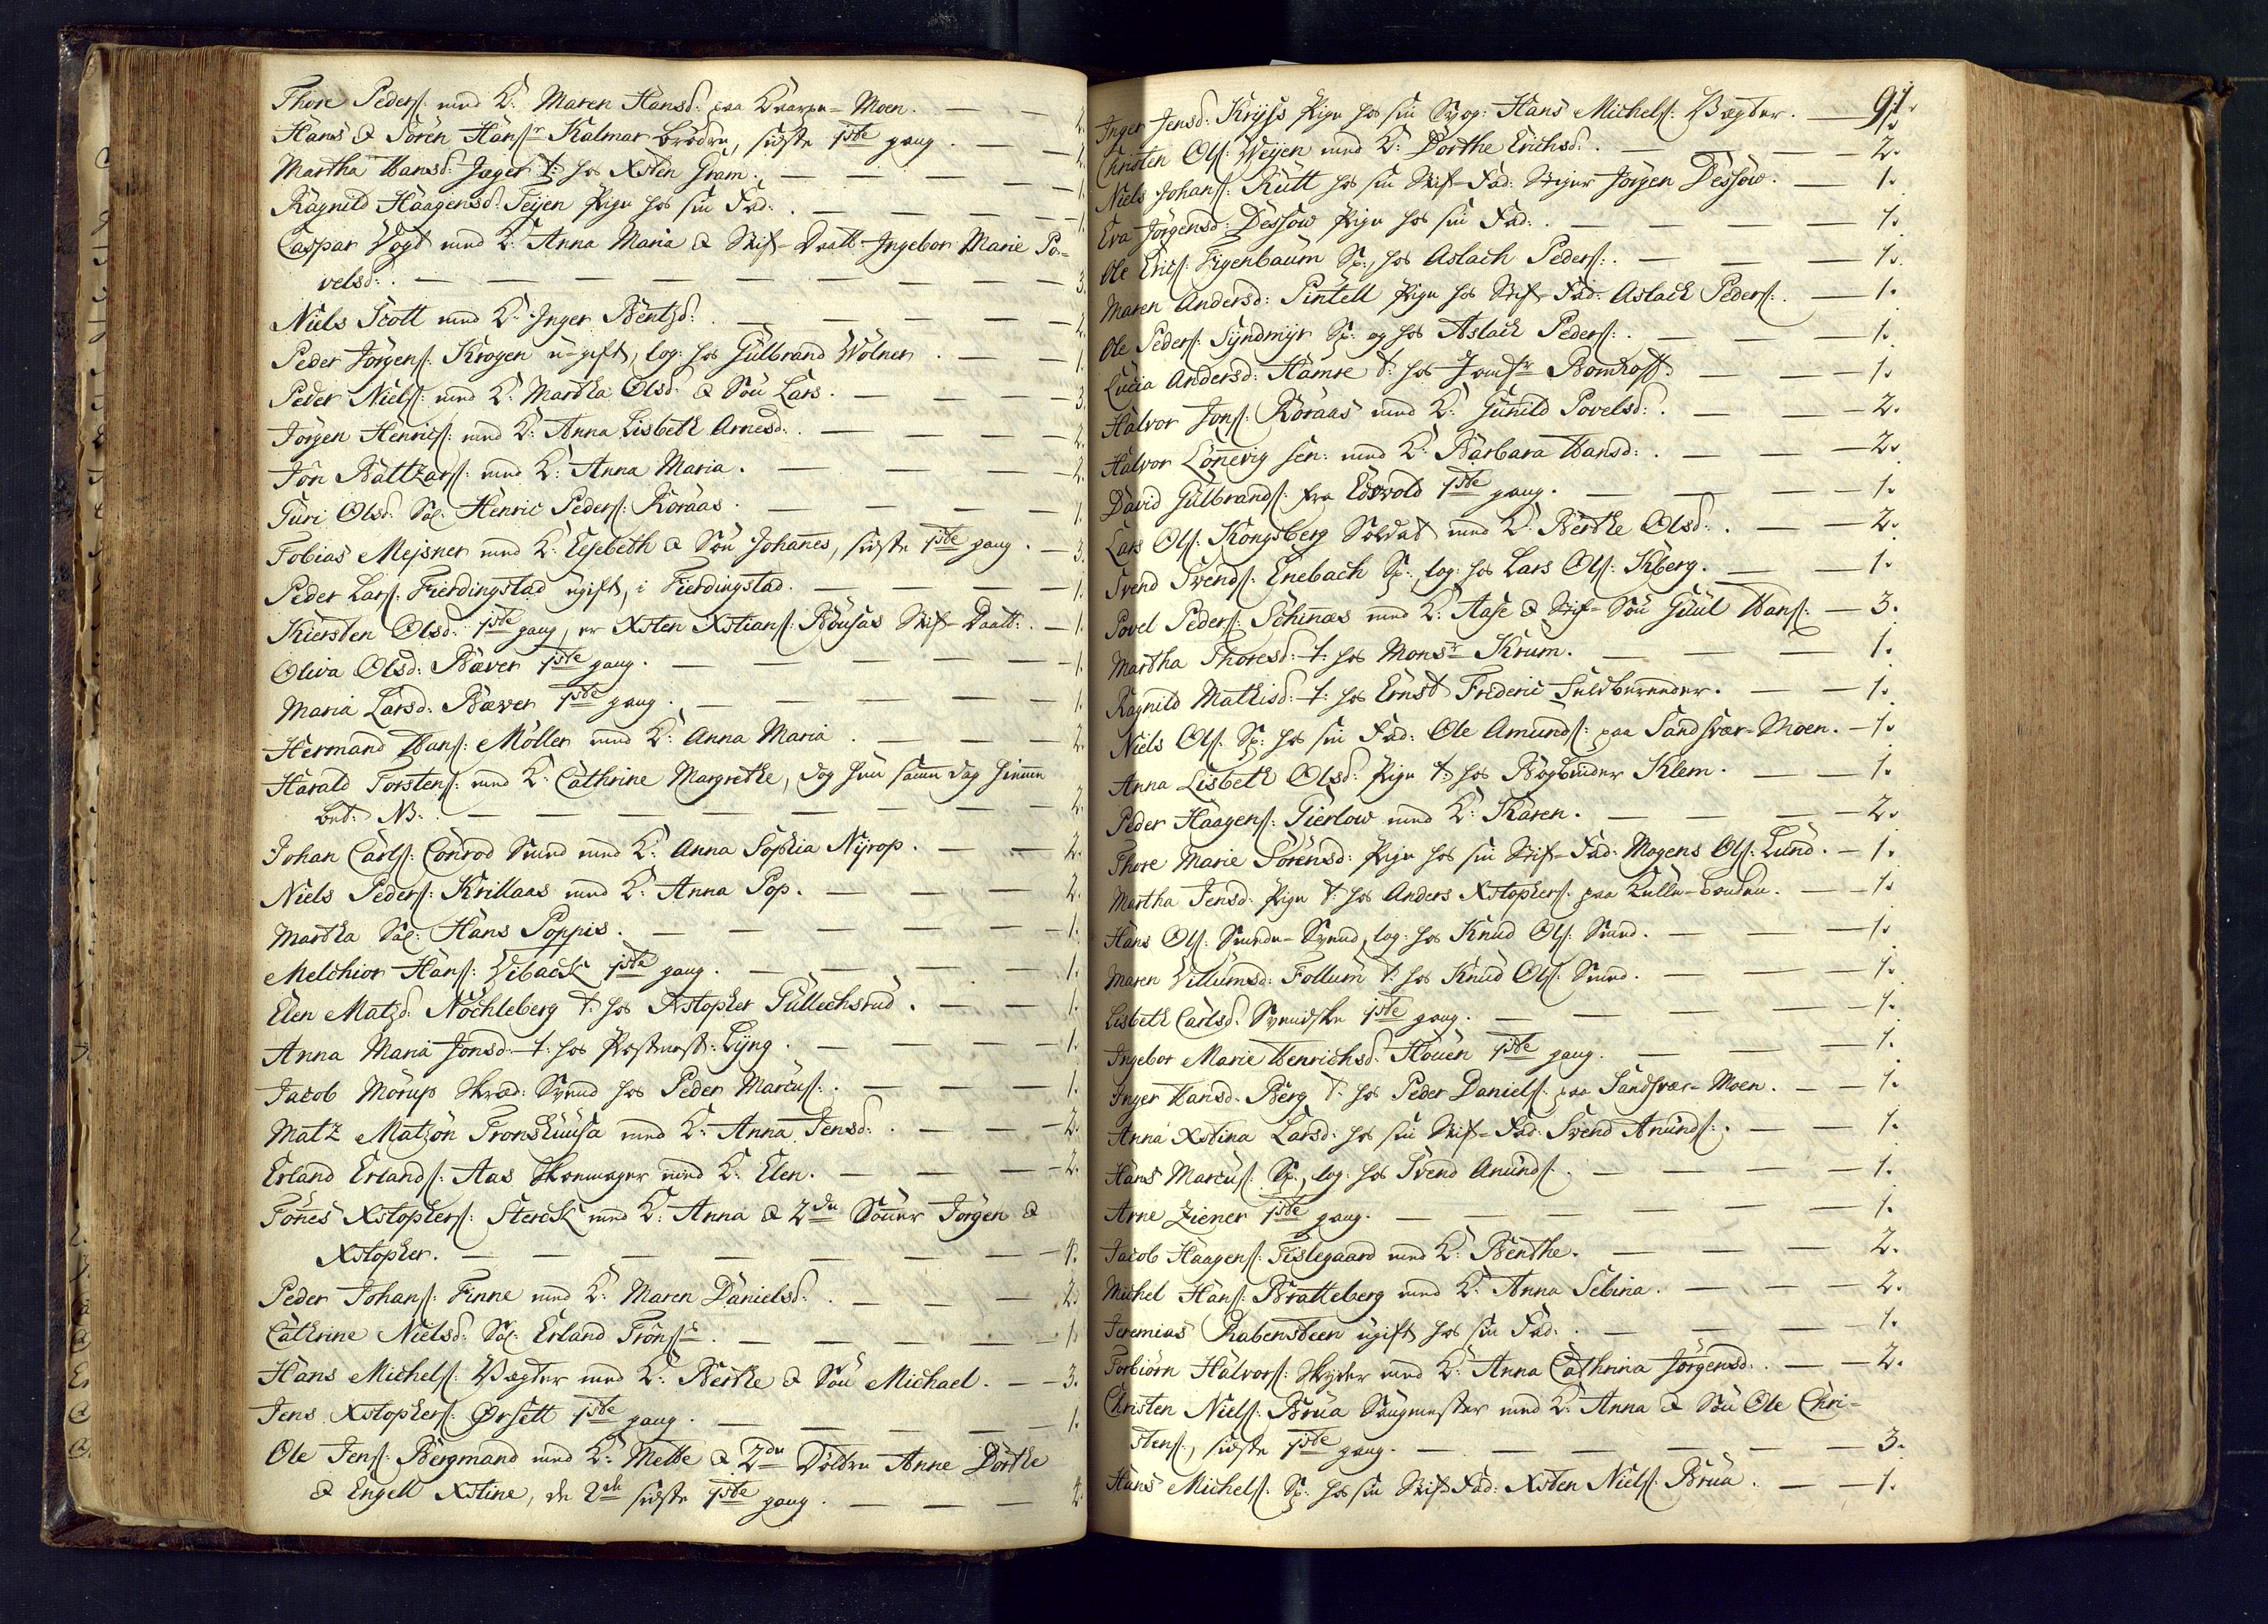 Thore Peders: med K: Maren Hansd: paa Qvarps-Moen. — — 2.
Hans & Sören Hansr Kalmar brödre, sidste 1ste gang. — — 2.
Martha Hansd: Jæger t: hos Xsten Gram. — — 1.
Ragnild Haagensd: Teijen Pige hos sin Fad: — — 1.
Caspar Vogt med K: Anna Maria & Stif-Daatt Ingebor Marie Po-
velsd: — — 3.
Niels Scott med K: Inger Bentzd: — — 2.
Peder Jörgens: Krogen u-gift, log: hos Gulbrand Wölner. — — 1.
Peder Niels: med K: Martha Olsd: & Sön Lars. — — 3.
Jörgen Henrics: med K: Anna Lisbeth Arnesd: — — 2.
Jon Baltzars: med K: Anna Maria. — — 2.
Turi Olsd: Sal: Henric Peders: Röraas. — — 1.
Tobias Mejsner med K: Elsebeth & Sön Johannes, sidste 1ste gang. — 3.
Peder Lars: Fierdingstad ugift, i Fierdingstad. — — 1.
Kiersten Olsd: 1ste gang, er Xsten Xstians: Bousas Stif-Daatt: — 1.
Oliva Olsd: Bæver 1ste gang. — — 1.
Maria Larsd: Bæver 1ste gang. — — 1.
Hermand Hans: Möller med K: Anna Maria. — — 2.
Harald Torstens: med K: Cathrine Margrethe, dog hun samme dag hiemme
bet: NB. — — 2.
Johan Carls: Conrod Smed med K: Anna Sophia Nyrop. — — 2.
Niels Peders: Krillaas med K: Anna Pop. — — 2.
Martha Sal: Hans Poppis. — — 1.
Melchior Hans: Wiback 1ste gang. — — 1.
Elen Matzd: Nöchleberg t: hos Xstopher Gullechsrud. — — 1.
Anna Maria Jonsd: t: hos Postmest: Lyng. — — 1.
Jacob Mörup Skræd: Svend hos Peder Marcus: — — 1.
Matz Matzön Tronshuusa med K: Anna Jensd: — — 2.
Erland Erlands: Aas Skomager med K: Elen. — — 2.
Tönnes Xstophers: Sterck med K: Anna & 2de Sönner Jörgen &
Xstopher. — — 4.
Peder Johans: Finne med K: Maren Danielsd: — — 2.
Cathrine Nielsd: Sal: Erland Trons: — — 1.
Hans Michels: Vægter med K: Berthe & Sön Michael. — — 3.
Jens Xstophers: Ørsett 1ste gang. — — 1.
Ole Jens: Bergmand med K: Mette & 2de Döttre Anne Dorthe
& Engell Xstine, de 2de sidste 1ste gang. — — 4.
91.
Inger Jensd: Kryss Pige hos sin Svog: Hans Michels: Vægter. — 1.
Christen Ols: Weijen med K: Dorthe Erichsd: — — 2.
Niels Johans: Rütt hos sin Stif-Fad: Stiger Jörgen Dessow. — 1.
Eva Jörgensd: Dessow Pige hos sin Fad: — — 1.
Ole Erics: Figenbaum Sp:, hos Aslach Peders: — — 1.
Maren Andersd: Pintell Pige hos Stif-Fad: Aslach Peders: — 1.
Ole Peders: Syndmyr Sp: og hos Aslach Peders: — — 1.
Lucia Andersd: Hamre t: hos Jomfr Bomhoff. — — 1.
Halvor Jons: Röraas med K: Gunild Povelsd: — — 2.
Halvor Lönevig sen: med K: Barbara Hansd: — — 2.
David Gulbrands: fra Edsvold 1ste gang. — — 1.
Lars Ols: Kongsberg Soldat med K: Berthe Olsd: — — 2.
Svend Svends: Enebach Sp:, log: hos Lars Ols: Kberg. — — 1.
Povel Peders: Schinæs med K: Aase & Stif-Sön Guul Hans: — 3.
Martha Thoresd: t: hos Monsr Krum. — — 1.
Ragnild Mathisd: t: hos Ernst Frideric Guldbrender. — — 1.
Niels Ols: Sp: hos sin Fad: Ole Amunds: paa Sandsvær-Moen. — 1.
Anna Lisbeth Olsd: Pige t: hos Bogbinder Klem. — — 1.
Peder Haagens: Gierlow med K: Karen. — — 2.
Thore Marie Sörensd: Pige hos sin Stif-Fad: Mogens Ols: Lund. — 1.
Martha Jensd: Pige t: hos Anders Xstophers: paa Kulle-Brudden. — — 1.
Hans Ols: Smede-Svend, log: hos Knud Ols: Smed. — — 1.
Maren Villumsd: Follum t: hos Knud Ols: Smed. — — 1.
Lisbeth Carlsd: Svendske 1ste gang. — — 1.
Ingebor Marie Henrichsd: Houen 1ste gang. — — 1.
Inger Hansd: Berg t: hos Peder Daniels: paa Sandsvær-Moen. — — 1.
Anna Xstina Larsd: hos sin Stif-Fad: Svend Anunds: — — 1.
Hans Marcus: Sp:, log: hos Svend Anunds: — — 1.
Arne Ziener 1ste gang. — — 1.
Jacob Haagens: Tislegaard med K: Benthe. — — 2.
Michel Hans: Bratteberg med K: Anna Sebina. — — 2.
Jeremias Rabensteen ugift hos sin Fad: — — 1.
Torbiörn Halvors: Skyder med K: Anna Cathrina Jörgensd: — — 2.
Christen Niels: Brua Saugmester med K: Anna & Sön Ole Chri-
stens:, sidste 1ste gang. — — 3.
Hans Michels: Sp: hos sin Stif-Fad: Xsten Niels: Brua. — — 1.